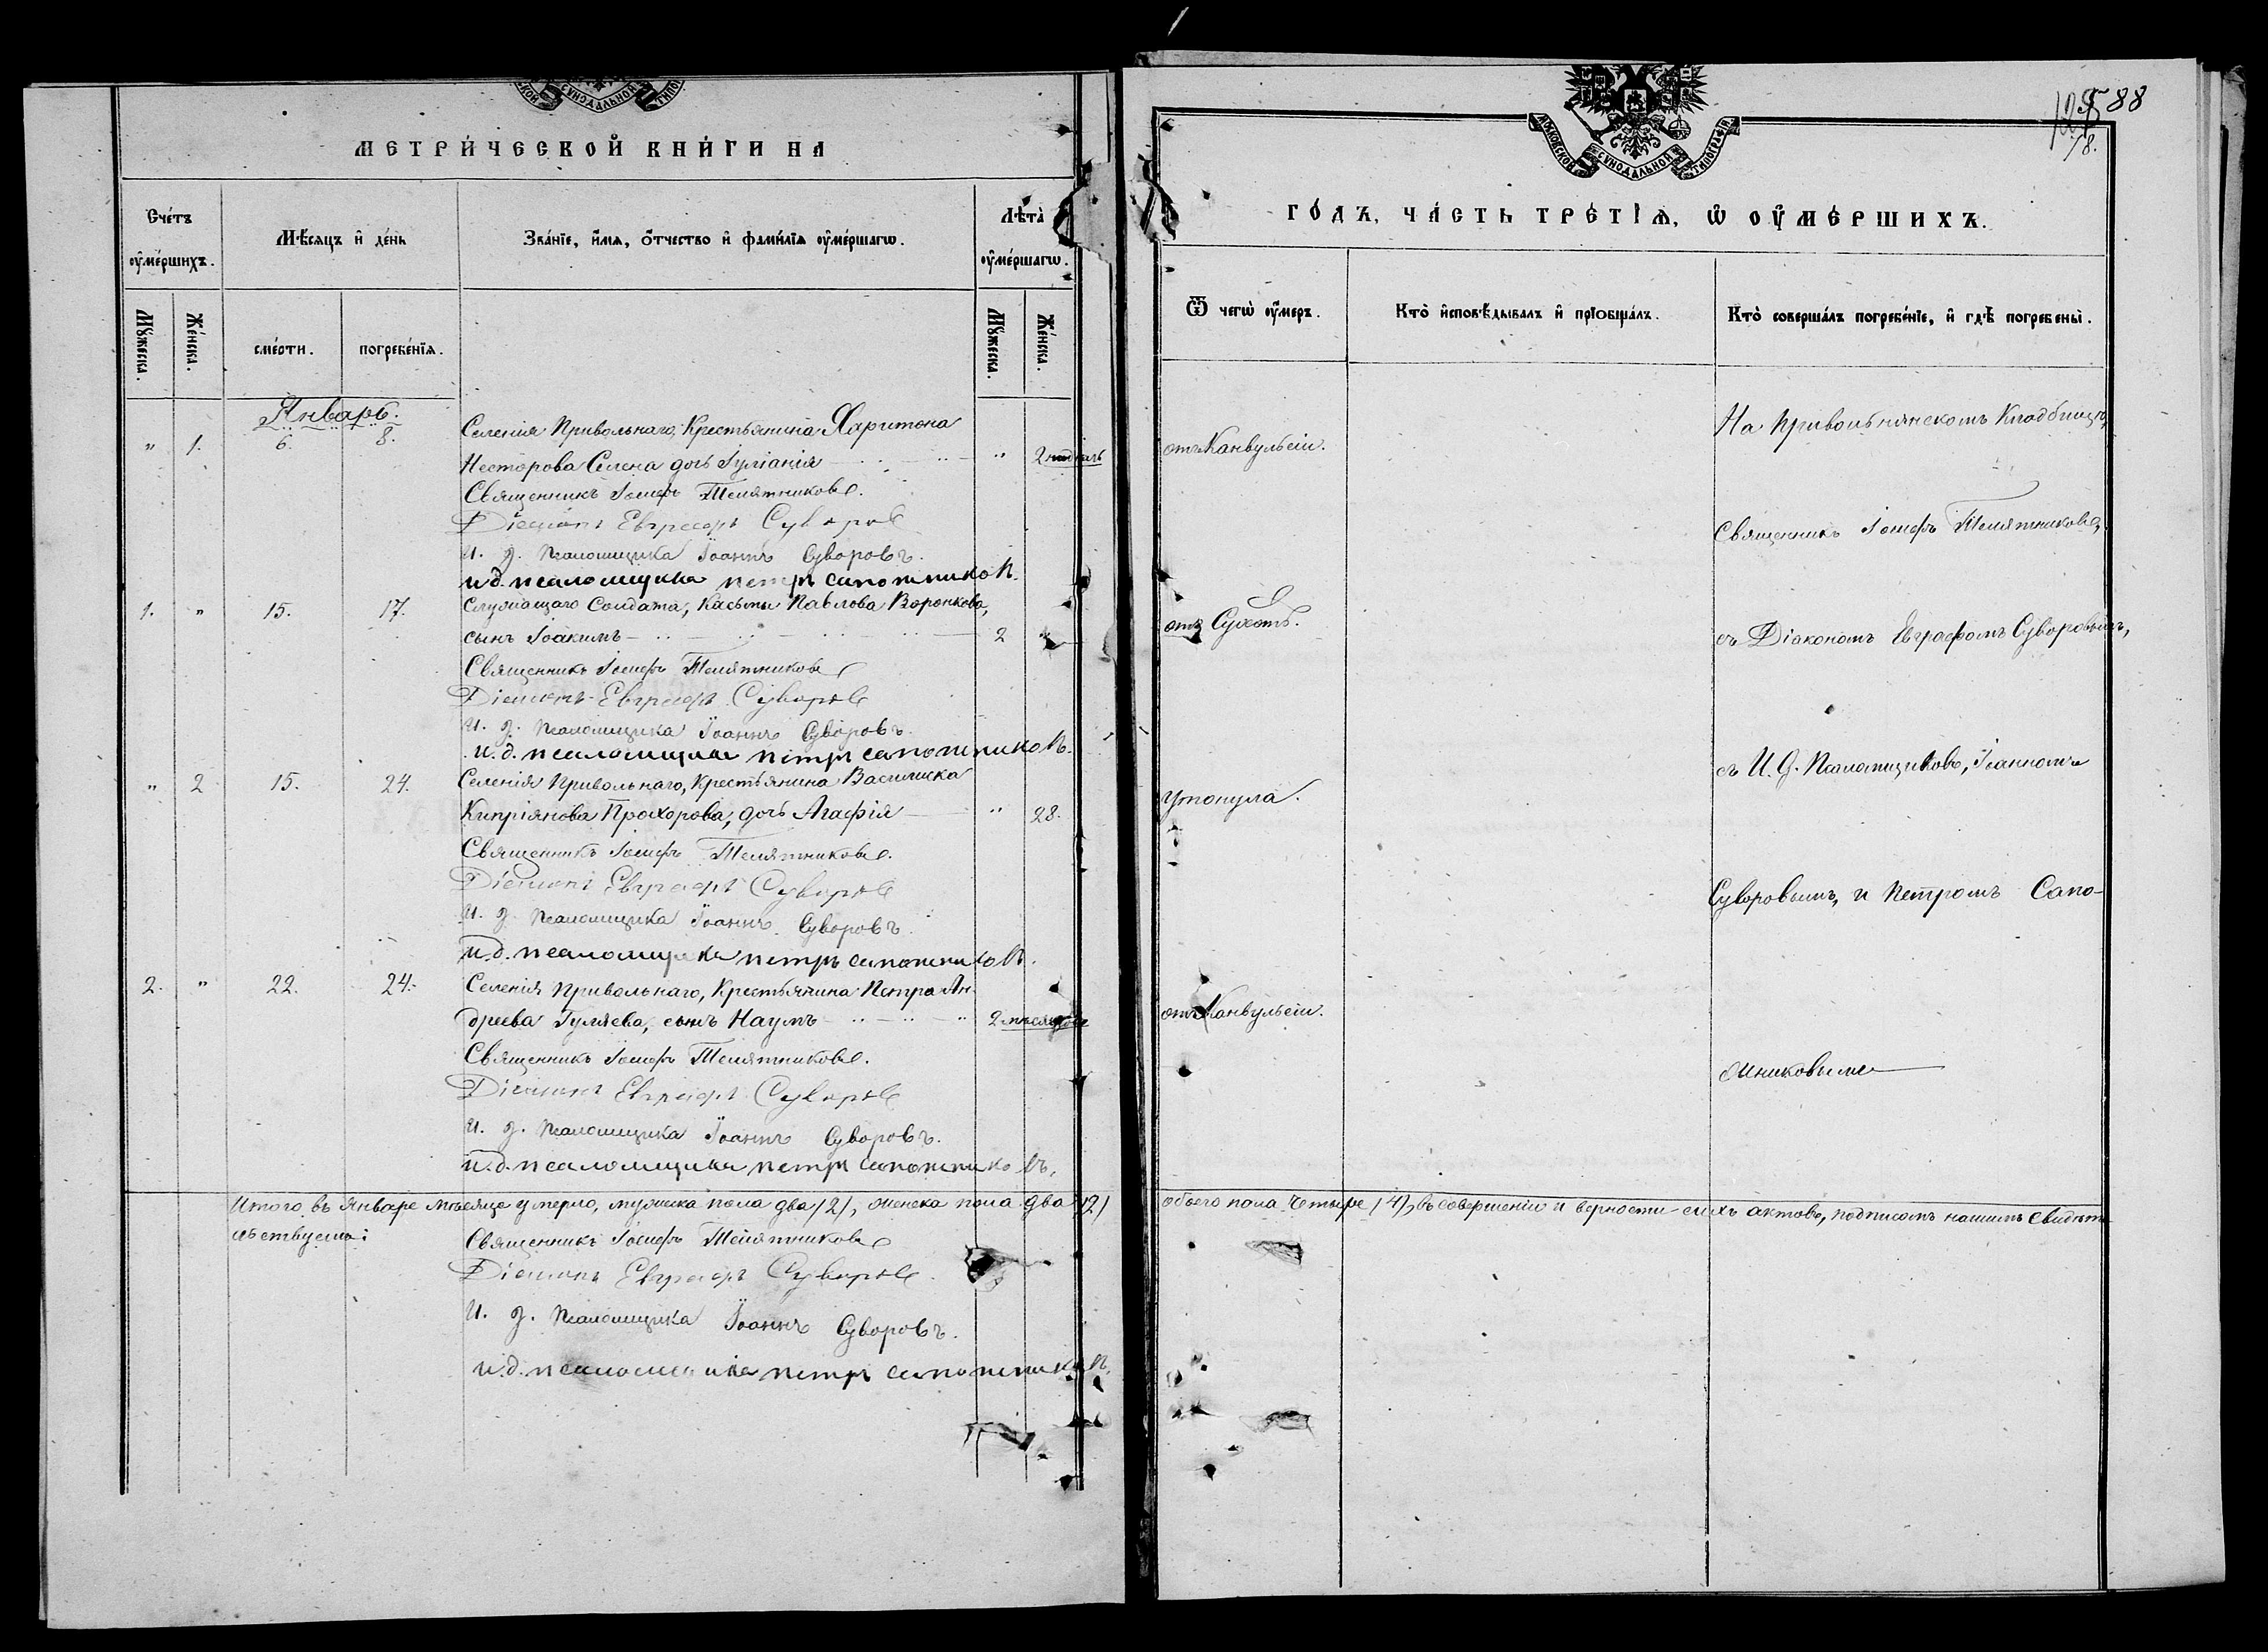 МЕТРИЧЕСКОЙ КНИГИ НА
Счетъ оумершихъ.
Мѣсяцъ и день
Званіе, имя, отчество и фамилія оумершагѡ.
Лѣта оумершагѡ.
Мужеска.
Женска.
смерти.
погребенія.
Мужеска.
Женска.
Январь.
" 1. 6. 8. Селенія Привольнаго, Крестьянина Харитона
Несторова дочь Іуліанія " 2
Священникъ Іосифъ Телятниковъ.
Діаконъ Евграфъ Суворовъ
И. д. Псаломщика Іоаннъ Суворовъ.
и.д. псаломщика петръ сапожниковъ.
1. " 15. 17. Служащаго Солдата, Касьмы Павлова Воронкова,
сынъ Іоакимъ 2 "
Священникъ Іосифъ Телятниковъ
Діаконъ Евграфъ Суворовъ
И. д. Псаломщика Іоаннъ Суворовъ.
и.д. псаломщика петръ сапожниковъ.
" 2 15. 24. Селенія Привольнаго, Крестьянина Василиска
Кипріянова Прохорова, дочь Агафія " 28.
Священникъ Іосифъ Телятниковъ.
Діаконъ Евграфъ Суворовъ
И. д. Псаломщика Іоаннъ Суворовъ.
и.д. псаломщика петръ сапожниковъ.
2. " 22. 24. Селенія Привольнаго, Крестьянина Петра Ан-
дреева Гуляева, сынъ Наумъ 2 мѣсяцовъ
Священникъ Іосифъ Телятниковъ.
Діаконъ Евграфъ Суворовъ
И. д. Псаломщика Іоаннъ Суворовъ.
и.д. псаломщика петръ сапожниковъ.
Итого въ Январе мѣсяце умерло, мужеска пола два /2/, женска пола два /2/
льствуемъ:
Священникъ Іосифъ Телятниковъ
Діаконъ Евграфъ Суворовъ.
И. д. Псаломщика Іоаннъ Суворовъ.
и.д. псаломщика петръ сапожниковъ.
МОСКОВСКОЙ СѴНОДАЛЬНОЙ ТИПОГРАФІИ
88
ГОДЪ, ЧАСТЬ ТРЕТІЯ, Ѡ ОУМЕРШИХЪ.
Ѿ чегѡ оумеръ.
Кто исповѣдывалъ и пріобщалъ.
Кто совершалъ погребеніе, и гдѣ погребены.
отъ Канвульсіи.
На Привольнянскомъ Кладбищѣ,
Священникъ Іосифъ Телятниковъ,
отъ Сухоты.
съ Діакономъ Евграфомъ Суворовымъ,
съ И. Д. Псаломщиковъ, Іоанномъ
Утонула.
Суворовымъ, и Петромъ Сапо-
отъ Канвульсіи.
жниковымъ
обоего пола Четыре /4/, въ совершеніи и верности сихъ актовъ, подписомъ нашимъ Свидѣте-